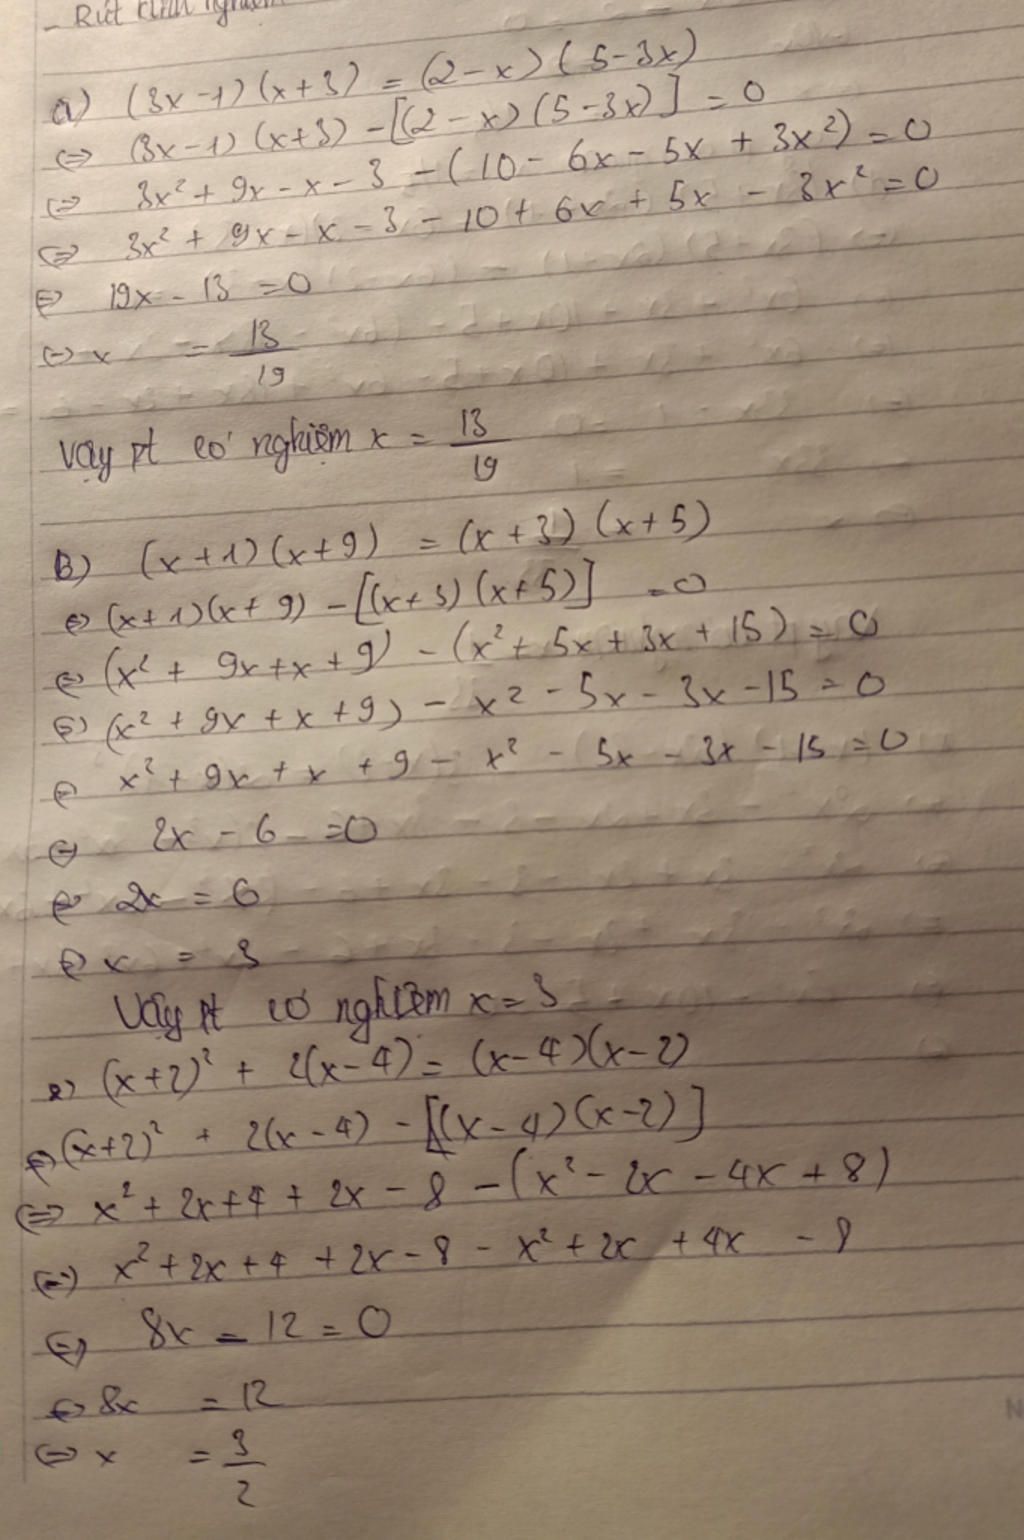 - Rút kinh nghiệm
a) (3x-1)(x+3) = (2-x)(5-3x)
⇔ (3x-1)(x+3) - [(2-x)(5-3x)] = 0
⇔ 3x² + 9x - x - 3 - (10 - 6x - 5x + 3x²) = 0
⇔ 3x² + 9x - x - 3 - 10 + 6x + 5x - 3x² = 0
⇔ 19x - 13 = 0
⇔ x = 13/19
Vậy pt có nghiệm x = 13/19
B) (x+1)(x+9) = (x+3)(x+5)
⇔ (x+1)(x+9) - [(x+3)(x+5)] = 0
⇔ (x² + 9x + x + 9) - (x² + 5x + 3x + 15) = 0
⇔ (x² + 9x + x + 9) - x² - 5x - 3x - 15 = 0
⇔ x² + 9x + x + 9 - x² - 5x - 3x - 15 = 0
⇔ 2x - 6 = 0
⇔ 2x = 6
⇔ x = 3
Vậy pt có nghiệm x = 3
(x+2)² + 2(x-4) = (x-4)(x-2)
⇔ (x+2)² + 2(x-4) - [(x-4)(x-2)]
⇔ x² + 2x + 4 + 2x - 8 - (x² - 2x - 4x + 8)
⇔ x² + 2x + 4 + 2x - 8 - x² + 2x + 4x - 8
⇔ 8x - 12 = 0
⇔ 8x = 12
⇔ x = 3/2